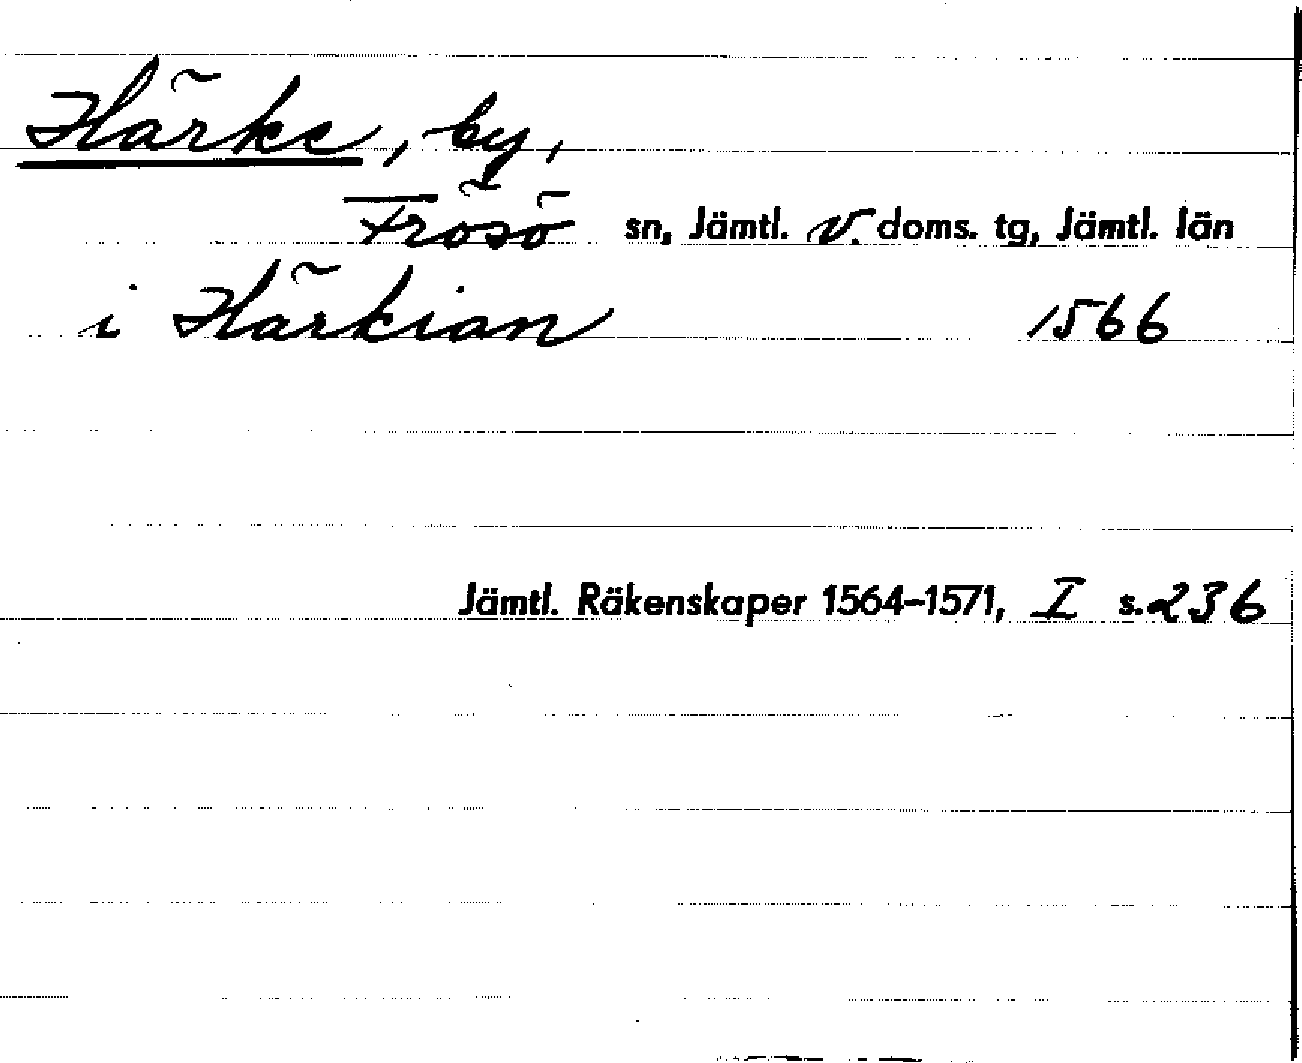 Härke, by,
Frösö sn, Jämtl. v. doms. tg, Jämtl. län
i Härkian 1566
Jämtl. Räkenskaper 1564–1571, I s. 236